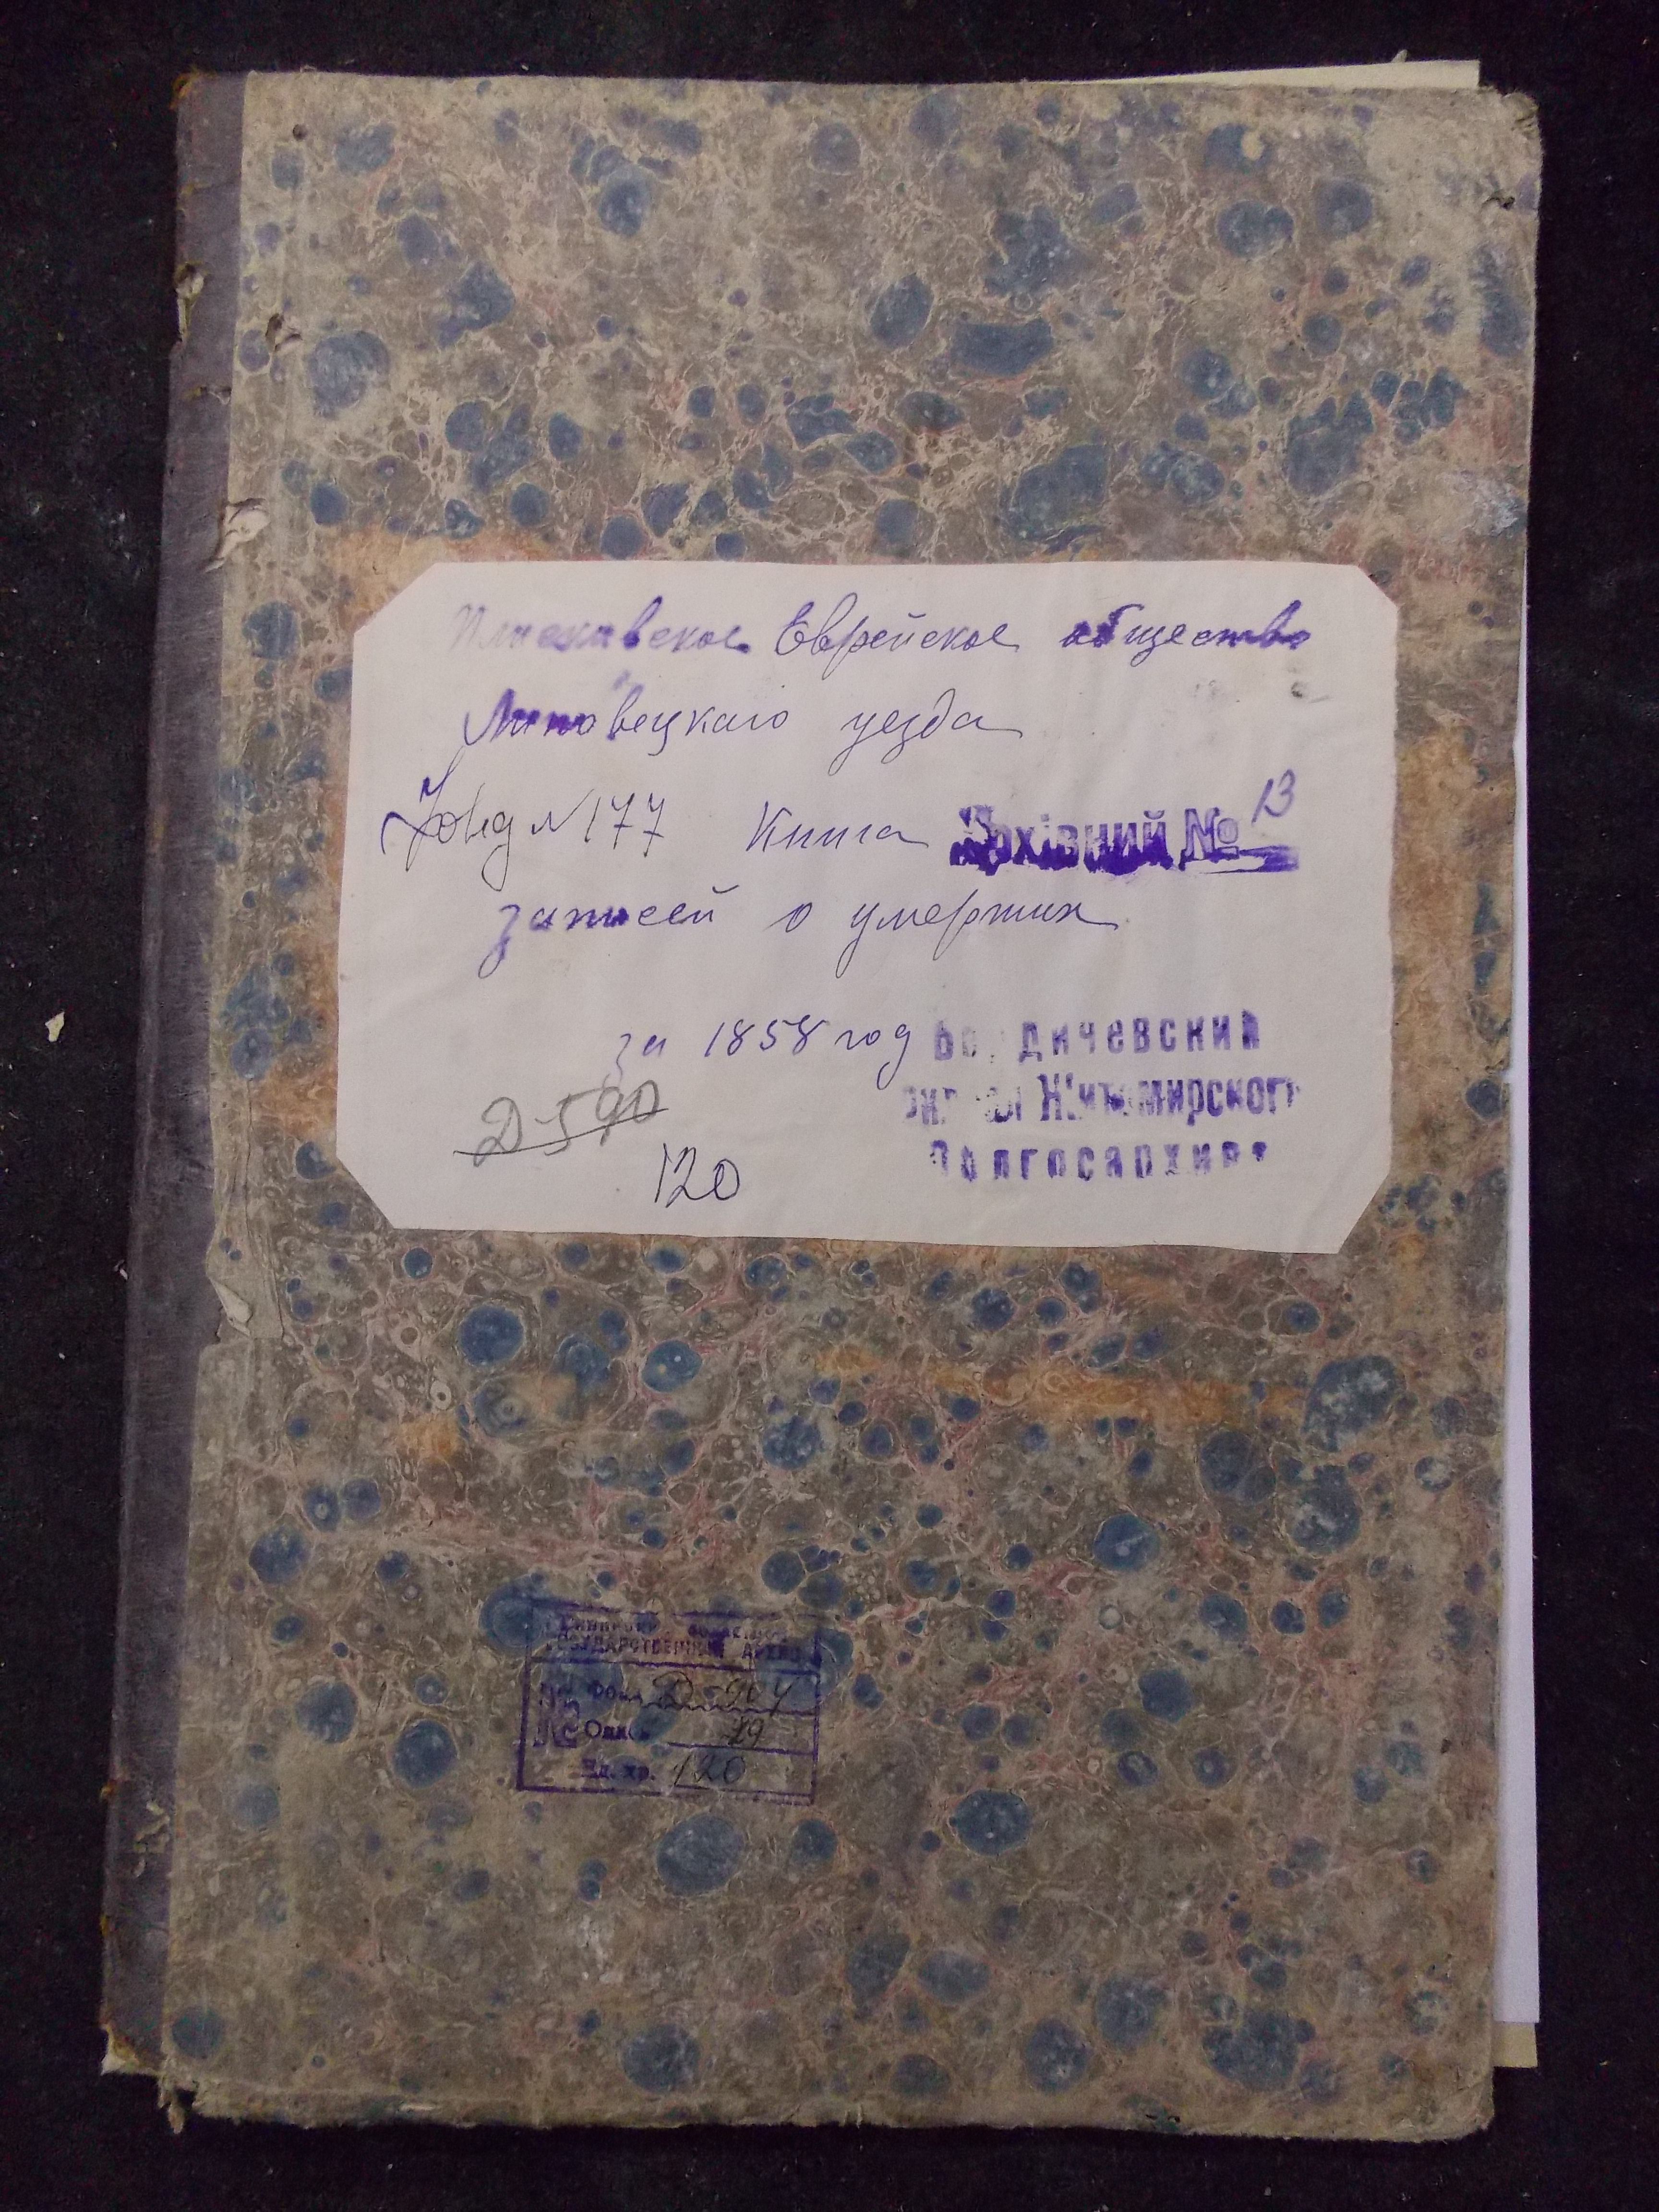 Плисковское Еврейское общество
Липовецкаго уезда
Фонд №177 Книга Архівний № 13
записей о умерших
за 1858 год
Бердичевский
филиал Житомирского
Облгосархива
Д-590
120
ГОСУДАРСТВЕННЫЙ АРХИВ
Фонд Д-904
Опись 29
Ед. хр. 120